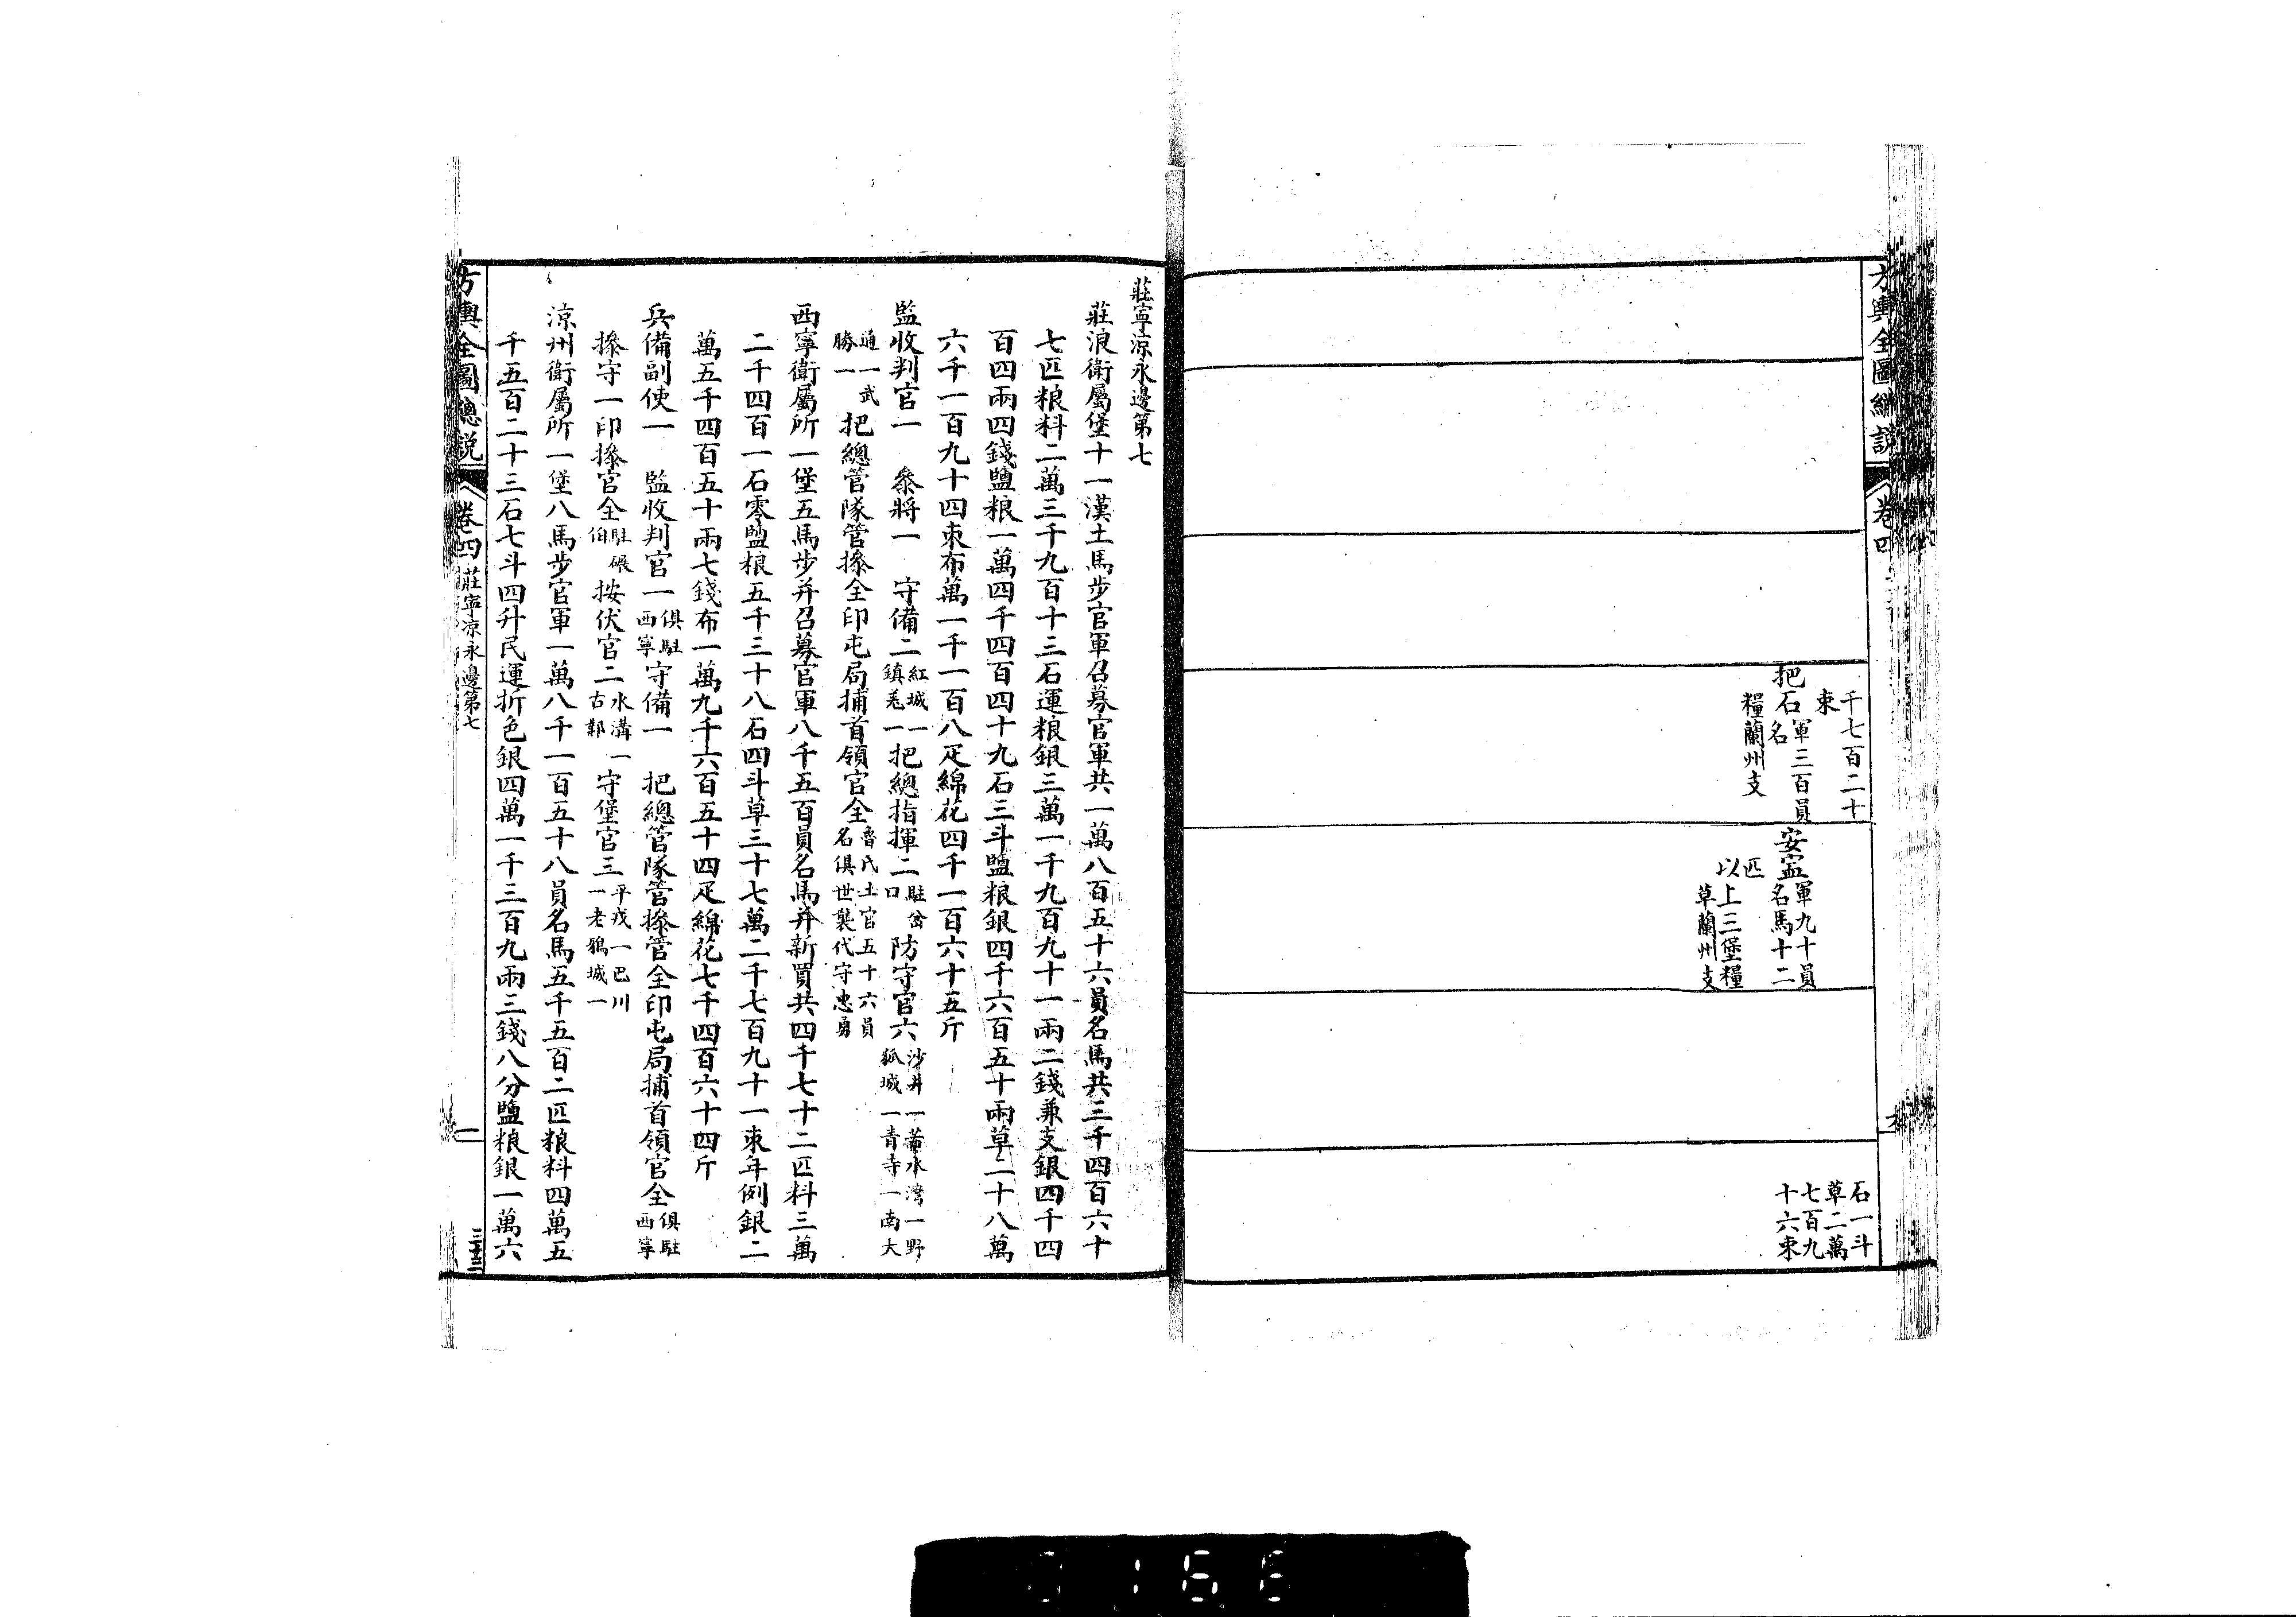 方輿全圖總説
卷四
千七百二十
束
把石軍三百員
名
糧蘭州支
安寍軍九十員
名馬十二
匹
以上三堡糧
草蘭州支
石一斗
草二萬
七百九
十六束
莊寧凉永邊第七
莊浪衛屬堡十一漢土馬步官軍召募官軍共一萬八百五十六員名馬共二千四百六十
七匹粮料二萬三千九百十三石運粮銀三萬一千九百九十一兩二錢兼支銀四千四
百四兩四錢鹽粮一萬四千四百四十九石三斗鹽粮銀四千六百五十兩草二十八萬
六千一百九十四束布萬一千一百八疋綿花四千一百六十五斤
監收判官一 叅將一 守備二紅城一鎮羌一把總指揮二駐岔口防守官六沙井一黄水灣一野狐城一青寺一南大
通一武勝一 把總管隊管操全印屯局捕首領官全魯氏土官五十六員名俱世襲代守忠勇
西寧衛屬所一堡五馬步并召募官軍八千五百員名馬并新買共四千七十二匹料三萬
二千四百一石零鹽粮五千三十八石四斗草三十七萬二千七百九十一束年例銀二
萬五千四百五十兩七錢布一萬九千六百五十四疋綿花七千四百六十四斤
兵備副使一 監收判官一俱駐西寧守備一 把總管隊管操管全印屯局捕首領官全俱駐西寧
操守一印操官全駐碾伯按伏官二水溝一古鄯 守堡官三平戎一巴川一老鴉城一
涼州衛屬所一堡八馬步官軍一萬八千一百五十八員名馬五千五百二匹粮料四萬五
千五百二十三石七斗四升民運折色銀四萬一千三百九兩三錢八分鹽粮銀一萬六
方輿全圖總説
卷四 莊寧凉永邊第七